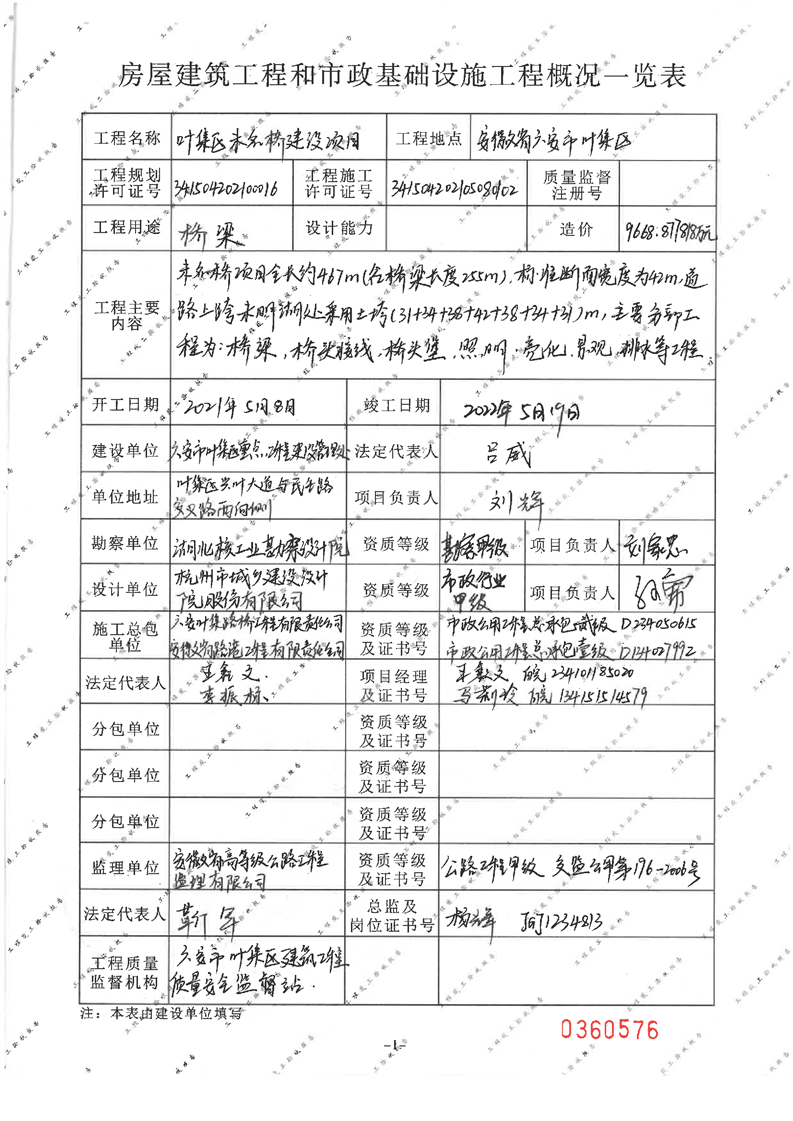 房屋建筑工程和市政基础设施工程概况一览表
工程名称 叶集区未名桥建设项目 工程地点 安徽省六安市叶集区
工程规划许可证号 341504202100016 工程施工许可证号 3415042021050802 质量监督注册号
工程用途 桥梁 设计能力 造价 9668.877818万元
工程主要内容 未名桥项目全长约467m(含桥梁长度255m),标准断面宽度为42m,道
路上跨未明湖处采用土垮(31+34+38+42+38+34+31)m,主要分部工
程为:桥梁,桥头接线,桥头堡.照明.亮化.景观.排水等工程.
开工日期 2021年5月8日 竣工日期 2022年5月19日
建设单位 六安市叶集区重点工程建设管理处 法定代表人 吕威
单位地址 叶集区兴叶大道与民生路
交叉路西向侧 项目负责人 刘辉
勘察单位 湖北核工业勘察设计院 资质等级 勘察甲级 项目负责人 刘家忠
设计单位 杭州市城乡建设设计
院股份有限公司 资质等级 市政行业
甲级 项目负责人
施工总包单位 六安叶集路桥工程有限责任公司
安徽省路港工程有限责任公司 资质等级及证书号 市政公用工程总承包贰级 D234050615
市政公用工程总承包壹级 D134027992
法定代表人 王毅文.
李振标. 项目经理及证书号 王毅文 皖234101185020
马莉玲 皖134151514579
分包单位 资质等级及证书号
分包单位 资质等级及证书号
分包单位 资质等级及证书号
监理单位 安徽省高等级公路工程
监理有限公司 资质等级及证书号 公路工程甲级 交监公甲第196-2006号
法定代表人 靳军 总监及岗位证书号 杨辉 JGJ1234813
工程质量监督机构 六安市叶集区建筑工程
质量安全监督站.
注:本表由建设单位填写
0360576
-1-